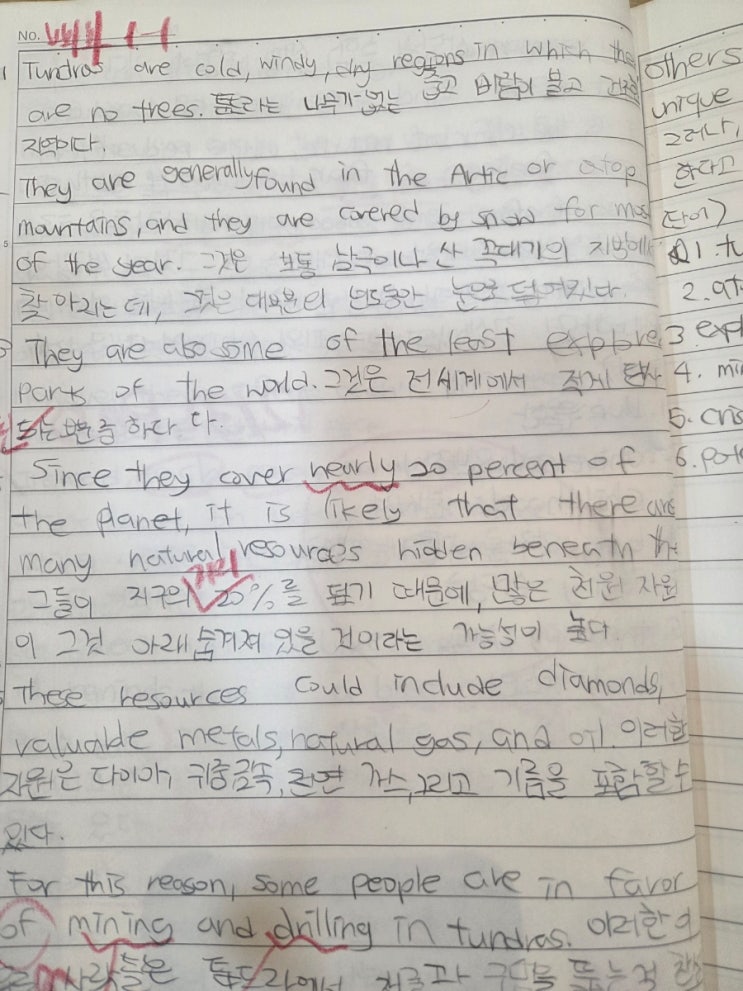 No.
Tundras are cold, windy, dry regions in which the
are no trees. 툰드라는 나무가 없는 춥고 바람이 불고 건조한
지역이다.
They are generally found in the Artic or atop
mountains, and they are covered by snow for most
of the year. 그것은 보통 남극이나 산 꼭대기의 지방에서
찾아지는데, 그것은 대부분의 년도동안 눈으로 덮여있다.
They are also some of the least explore
parts of the world. 그것은 전 세계에서 적게 탐사
하다.
Since they cover nearly 20 percent of
the planet, it is likely that there are
many natural resources hidden beneath th
거의
그들이 지구의 20%를 덮기 때문에, 많은 천연 자원
이 그것 아래 숨겨져 있을 것이라는 가능성이 높다.
These resources could include diamonds,
valuable metals, natural gas, and oil. 이러한
자원은 다이아, 귀중금속, 천연 가스, 그리고 기름을 포함할 수
있다.
For this reason, some people are in favor
of mining and drilling in tundras. 이러한 이
사람들은 툰드라에서
others
unique
그러나,
한다고
단어)
1. tu
2. at
3. expl
4. mi
5. cris
6. pol